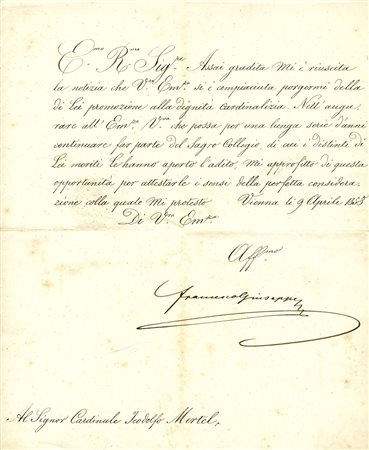 E.mo R.mo Sig.re Assai gradita Mi è riuscita
la notizia che V.ra Em.za si è compiaciuta porgermi della
di Lei promozione alla dignità cardinalizia. Nell'augu=
rare all'Em.za V.ra che possa per una lunga serie d'anni
continuare far parte del Sagro Collegio, di cui i distinti di
Lei meriti le hanno aperto l'adito, Mi approfitto di questa
opportunità per attestarle i sensi della perfetta considera
zione colla quale Mi protesto Vienna li 9 Aprile
Di V.ra Em.za
Aff.mo
Francesco Giuseppe
Al Signor Cardinale Teodolfo Mertel,